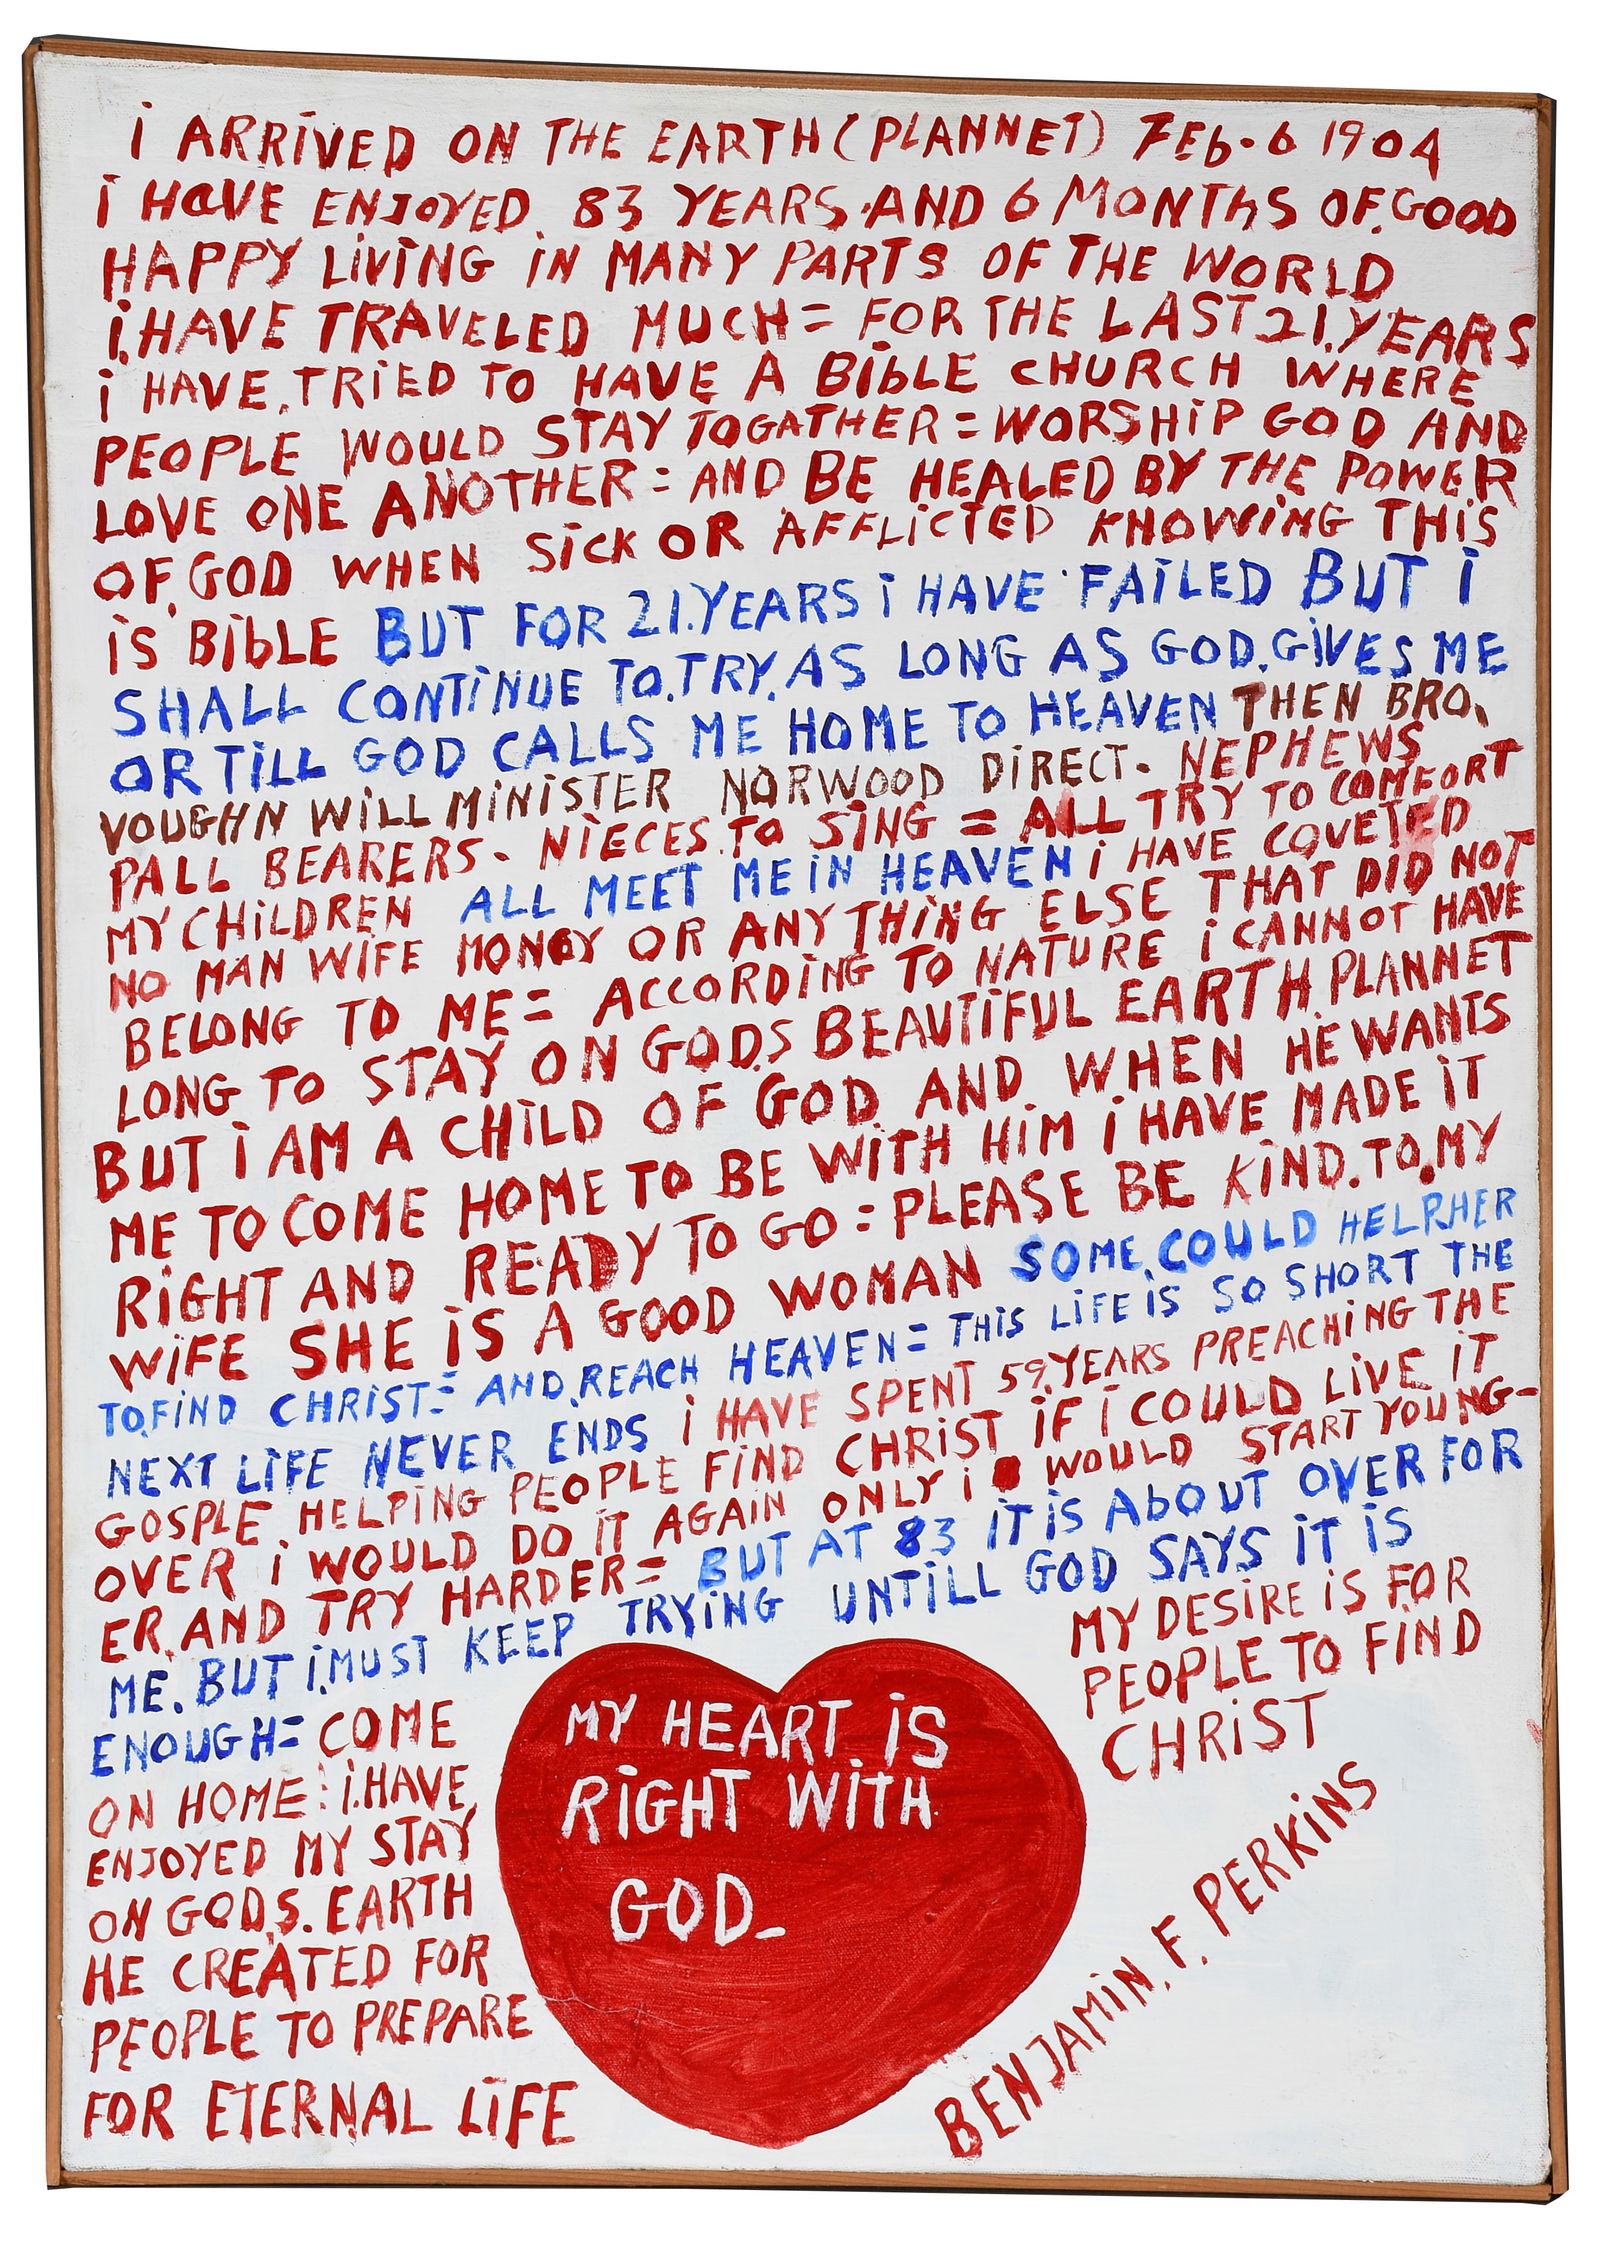 i ARRiVED ON THE EARTH (PLANNET) FEb. 6 1904
i HaVE ENJOYED. 83 YEARS. AND 6 MONThS OF. GOOD
HAPPY LiViNG iN MANY PARTS OF THE WORLD
i. HAVE TRAVELED MUCH = FOR THE LAST 21. YEARS
i HAVE. TRiED TO HAVE A BibLE CHURCH WHERE
PEOPLE WOULD STAY TOGATHER = WORSHiP GOD AND
LOVE ONE ANOTHER = AND BE HEALED BY THE POWER
OF. GOD WHEN SiCK OR AFFLiCTED KNOWiNG THiS
iS BibLE BUT FOR 21. YEARS i HAVE FAiLED BUT i
SHALL CONTiNUE TO. TRY. AS LONG AS GOD. GiVES ME
OR TiLL GOD CALLS ME HOME TO HEAVEN THEN BRO.
VOUGHN WiLL MiNiSTER NORWOOD DiRECT. NEPHEWS
PALL BEARERS. NiECES. TO SiNG = ALL TRY TO COMFORT
MY CHiLDREN ALL MEET ME iN HEAVEN i HAVE COVETED
NO MAN WiFE MONEY OR ANY THiNG ELSE THAT DiD NOT
BELONG TO ME = ACCORDiNG TO NATURE i CANNOT HAVE
LONG TO STAY ON GOD,S BEAUTiFUL EARTH PLANNET
BUT i AM A CHiLD OF GOD AND WHEN HE WANTS
ME TO COME HOME TO BE WiTH HiM i HAVE MADE iT
RiGHT AND READY TO GO = PLEASE BE KiND. TO. MY
WiFE SHE iS A GOOD WOMAN SOME. COULD HELP. HER
TO. FiND CHRiST = AND. REACH HEAVEN = THiS LiFE iS SO SHORT THE
NEXT LiFE NEVER ENDS i HAVE SPENT 59. YEARS PREACHiNG THE
GOSPLE HELPiNG PEOPLE FiND CHRiST iF i COULD LiVE iT
OVER i WOULD DO iT AGAIN ONLY i WOULD START YOUNG-
ER. AND TRY HARDER = BUT AT 83 iT iS AbOUT OVER FOR
ME. BUT i. MUST KEEP TRYiNG UNTiLL GOD SAYS iT iS
ENOUGH = COME
ON HOME : i. HAVE
ENJOYED MY STAY
ON GOD,S. EARTH
HE CREATED FOR
PEOPLE TO PREPARE
FOR ETERNAL LiFE
MY HEART iS
RiGHT WiTH
GOD-
MY DESiRE iS FOR
PEOPLE TO FiND
CHRiST
BENJAMiN. F. PERKiNS